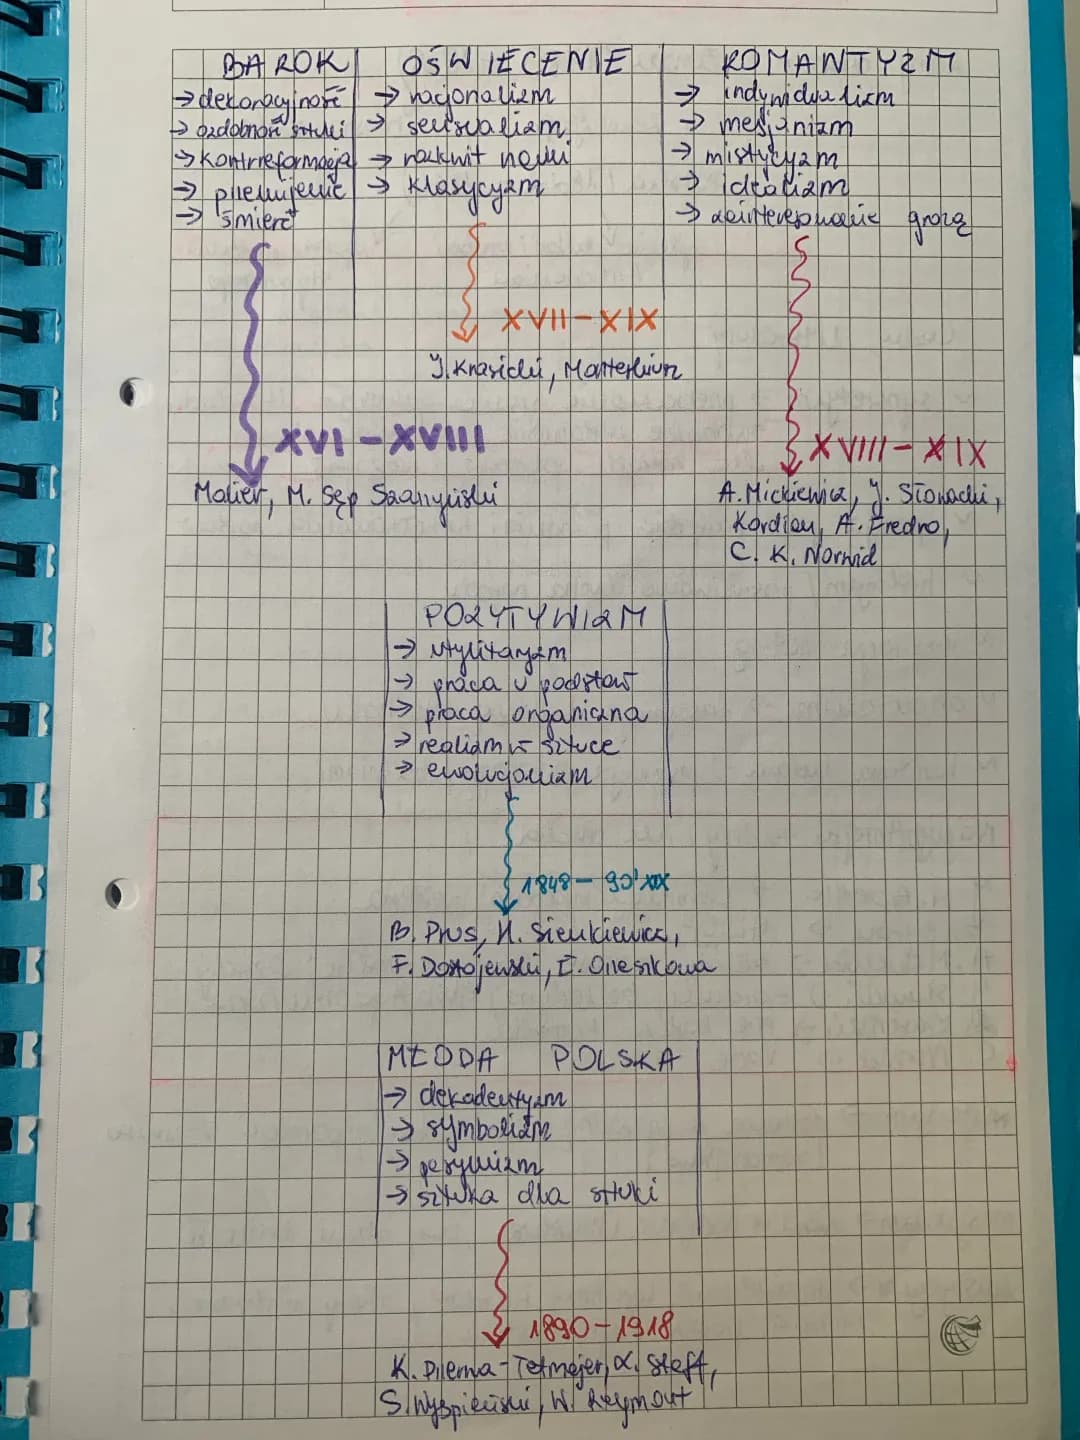 BAROK
→ dekoracyjność
→ ozdobność sztuki
→ kontrreformacja
→ przemijanie
→ śmierć
XVI - XVIII
Molier, M. Sęp Szarzyński
OŚWIECENIE
→ racjonalizm
→ sensualizm
→ rozkwit nauki
→ klasycyzm
XVII - XIX
I. Krasicki,
ROMANTYZM
→ indywidualizm
→ mesjanizm
→ mistycyzm
→ idealizm
→ zainteresowanie grozą
XVIII - XIX
A. Mickiewicz, J. Słowacki,
Kordian, A. Fredro,
C. K. Norwid
POZYTYWIZM
→ utylitaryzm
→ praca u podstaw
→ praca organiczna
→ realizm w sztuce
→ ewolucjonizm
1848 - 90' XIX
B. Prus, H. Sienkiewicz,
F. Dostojewski, E. Orzeszkowa
MŁODA POLSKA
→ dekadentyzm
→ symbolizm
→ pesymizm
→ sztuka dla sztuki
1890 - 1918
K. Przerwa-Tetmajer, L. Staff,
S. Wyspiański, W. Reymont